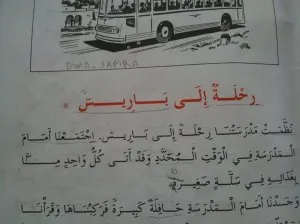 DIMA - SAFIRA
رِحْلَةٌ إِلَى بَارِيسَ
نَظَّمَتْ مَدْرَسَتُنَا رِحْلَةً إِلَى بَارِيسَ. اِجْتَمَعْنَا أَمَامَ
الْمَدْرَسَةِ فِي الْوَقْتِ الْمُحَدَّدِ وَقَدْ أَتَى كُلُّ وَاحِدٍ مِنَّا
بِغَدَائِهِ فِي سَلَّةٍ صَغِيرَةٍ
وَجَدْنَا أَمَامَ الْمَدْرَسَةِ حَافِلَةً كَبِيرَةً فَرَكِبْنَاهَا وَقَرَأْنَا